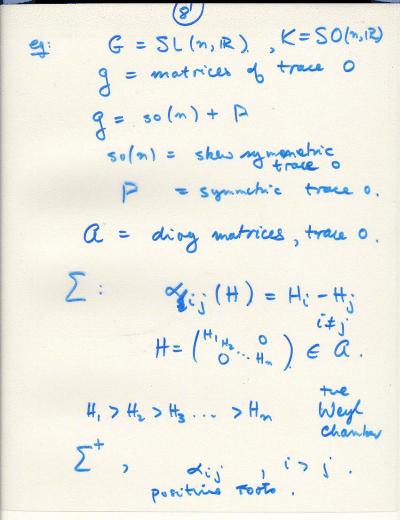 8
eg: G = SL(n, ℝ), K = SO(n, ℝ)
g = matrices of trace 0
g = so(n) + p
so(n) = skew symmetric
trace 0
p = symmetric trace 0.
a = diag matrices, trace 0.
Σ: α_ij (H) = H_i − H_j
i ≠ j
H = (H_1 H_2 ... H_n 0 0) ∈ a.
H_1 > H_2 > H_3 .... > H_n the Weyl chamber
Σ^+, α_ij, i > j.
positive roots.